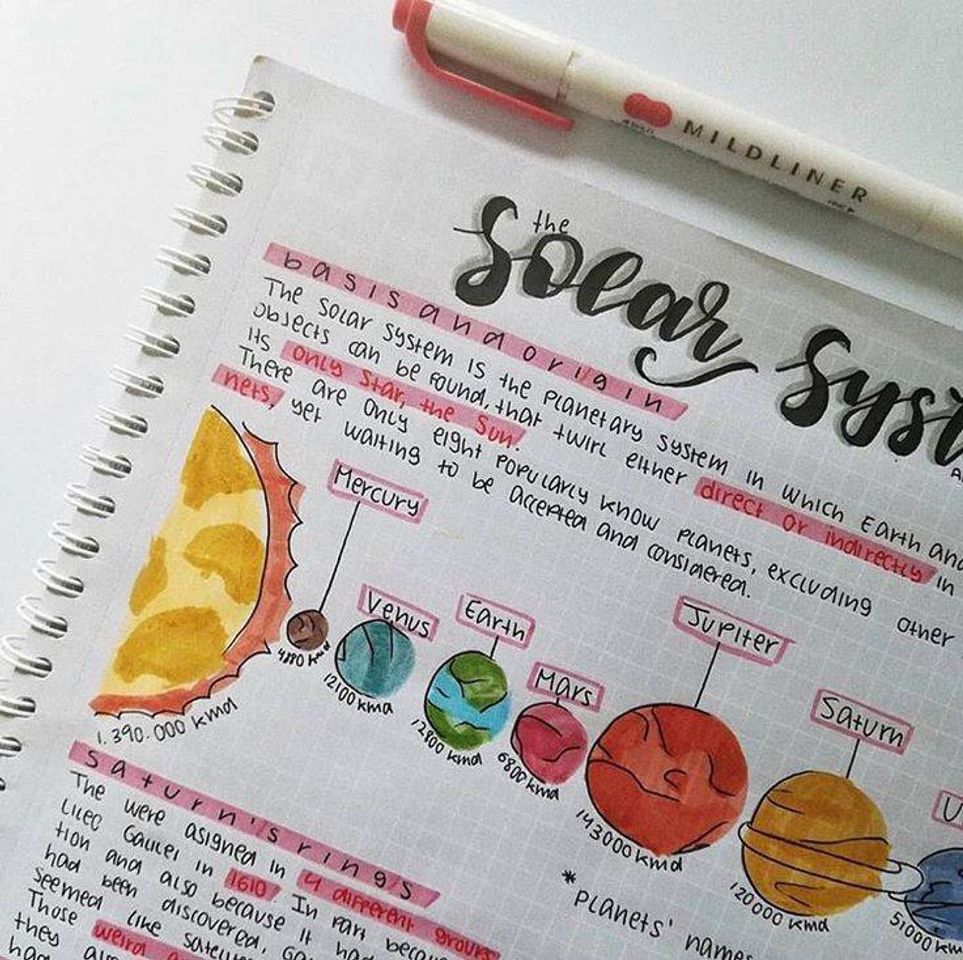 MILDLINER
the
Solar Syst
basis and origin
The solar system is the planetary system in which Earth and
objects can be found, that twirl either direct or indirectly in
its only star, the Sun.
There are only eight popularly know planets, excluding other
nets, yet waiting to be accepted and considered.
Mercury
Venus
Earth
Mars
Jupiter
Saturn
U
1.390.000 kmd
4880 kmd
12100 kmd
12800 kmd
6800 kmd
143000 kmd
120000 kmd
51000 km
saturn's rings
The were asigned in 4 different groups
Galilei in 1610. In part becau
tion and also because it had
had been discovered, Ga
seemed like satelli
Those weird a
they als
had
*planets' names